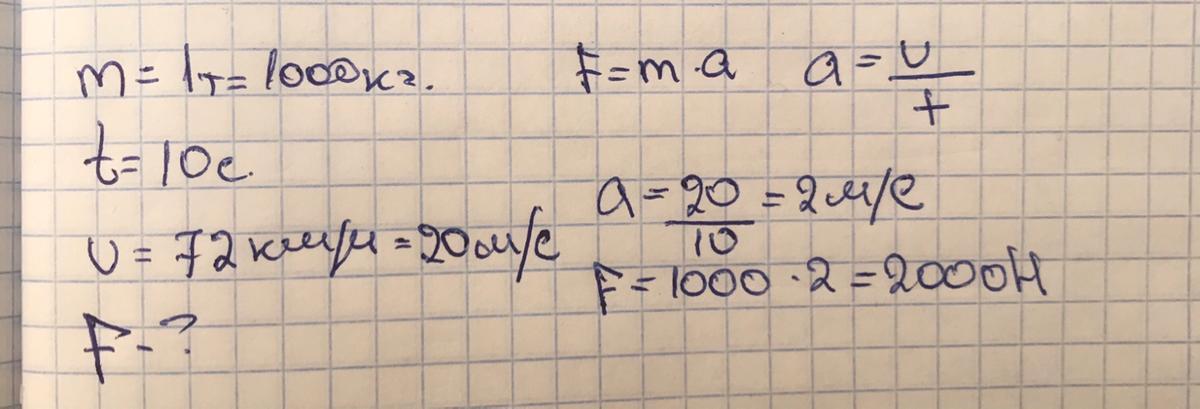 m = 1т = 1000кг.
t = 10с.
υ = 72км/ч = 20м/с
F - ?
F = m · a a = υ/t
a = 20/10 = 2м/с
F = 1000 · 2 = 2000Н